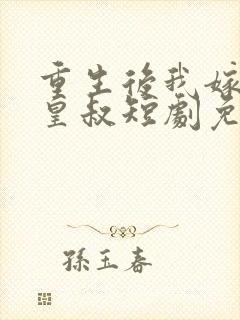 重生後我嫁
皇叔短劇免
孫玉春